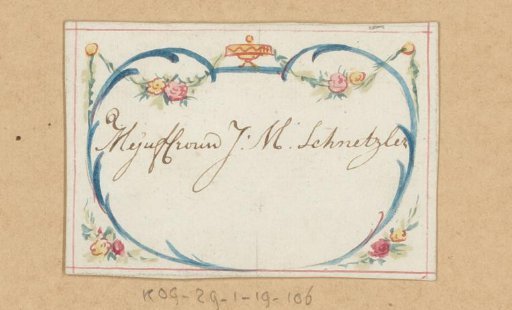 a
Mejuffrouw J: M: Schnetzler
KOG-29-1-19-106